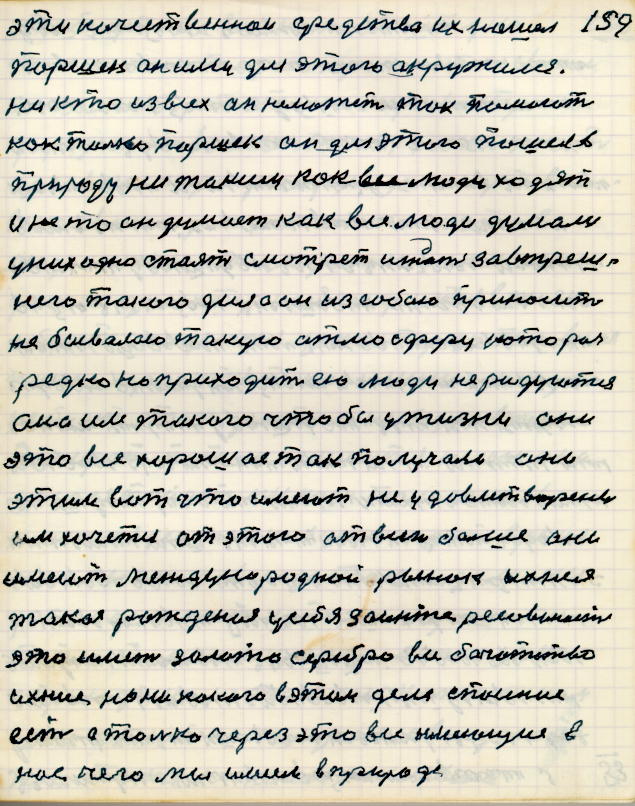 эти качественнаи средства их нашол 159
Паршек ан ими для этого акружился.
ни кто из всех ан неможет так помогат
как толко Паршек ан для этого пошел в
природу ни такии как все люди ходят
и не то он думает как все люди думали
у них адно стаят смотрет завтреш-
него такого дила он из собою приносит
не бывалаю такую атмосферу которая
редко но приходит ею люди не радуются
ана им такого чтобы у жизни они
это все хорошае так получали они
этим вот что имеют не удовлетворены
им хочется от этого от всих болше ани
имеют международной рынок ихняя
такая рождения у себя заинтересованост
это имет золото серебро все богатство
ихние но ни какого в этом деле
ест а толко через это все имеющие в
нас чего мы имеем в природе